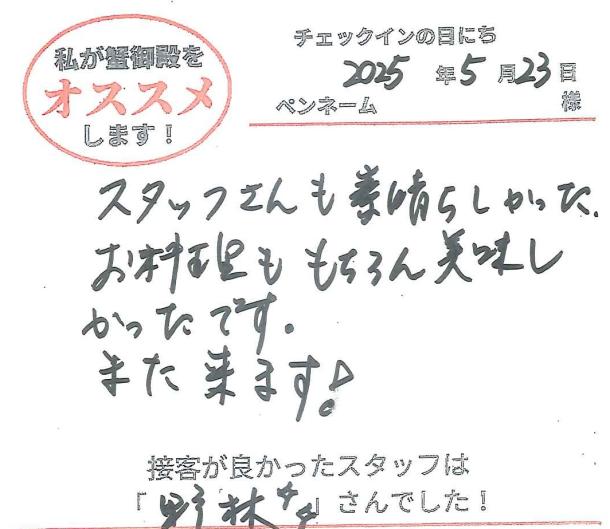 私が蟹御殿を
オススメ
します！
チェックインの日にち
2025年5月23日
ペンネーム 様
スタッフさんも素晴らしかった.
お料理も もちろん美味し
かったです。
また来ます!
接客が良かったスタッフは
「野林 」さんでした！